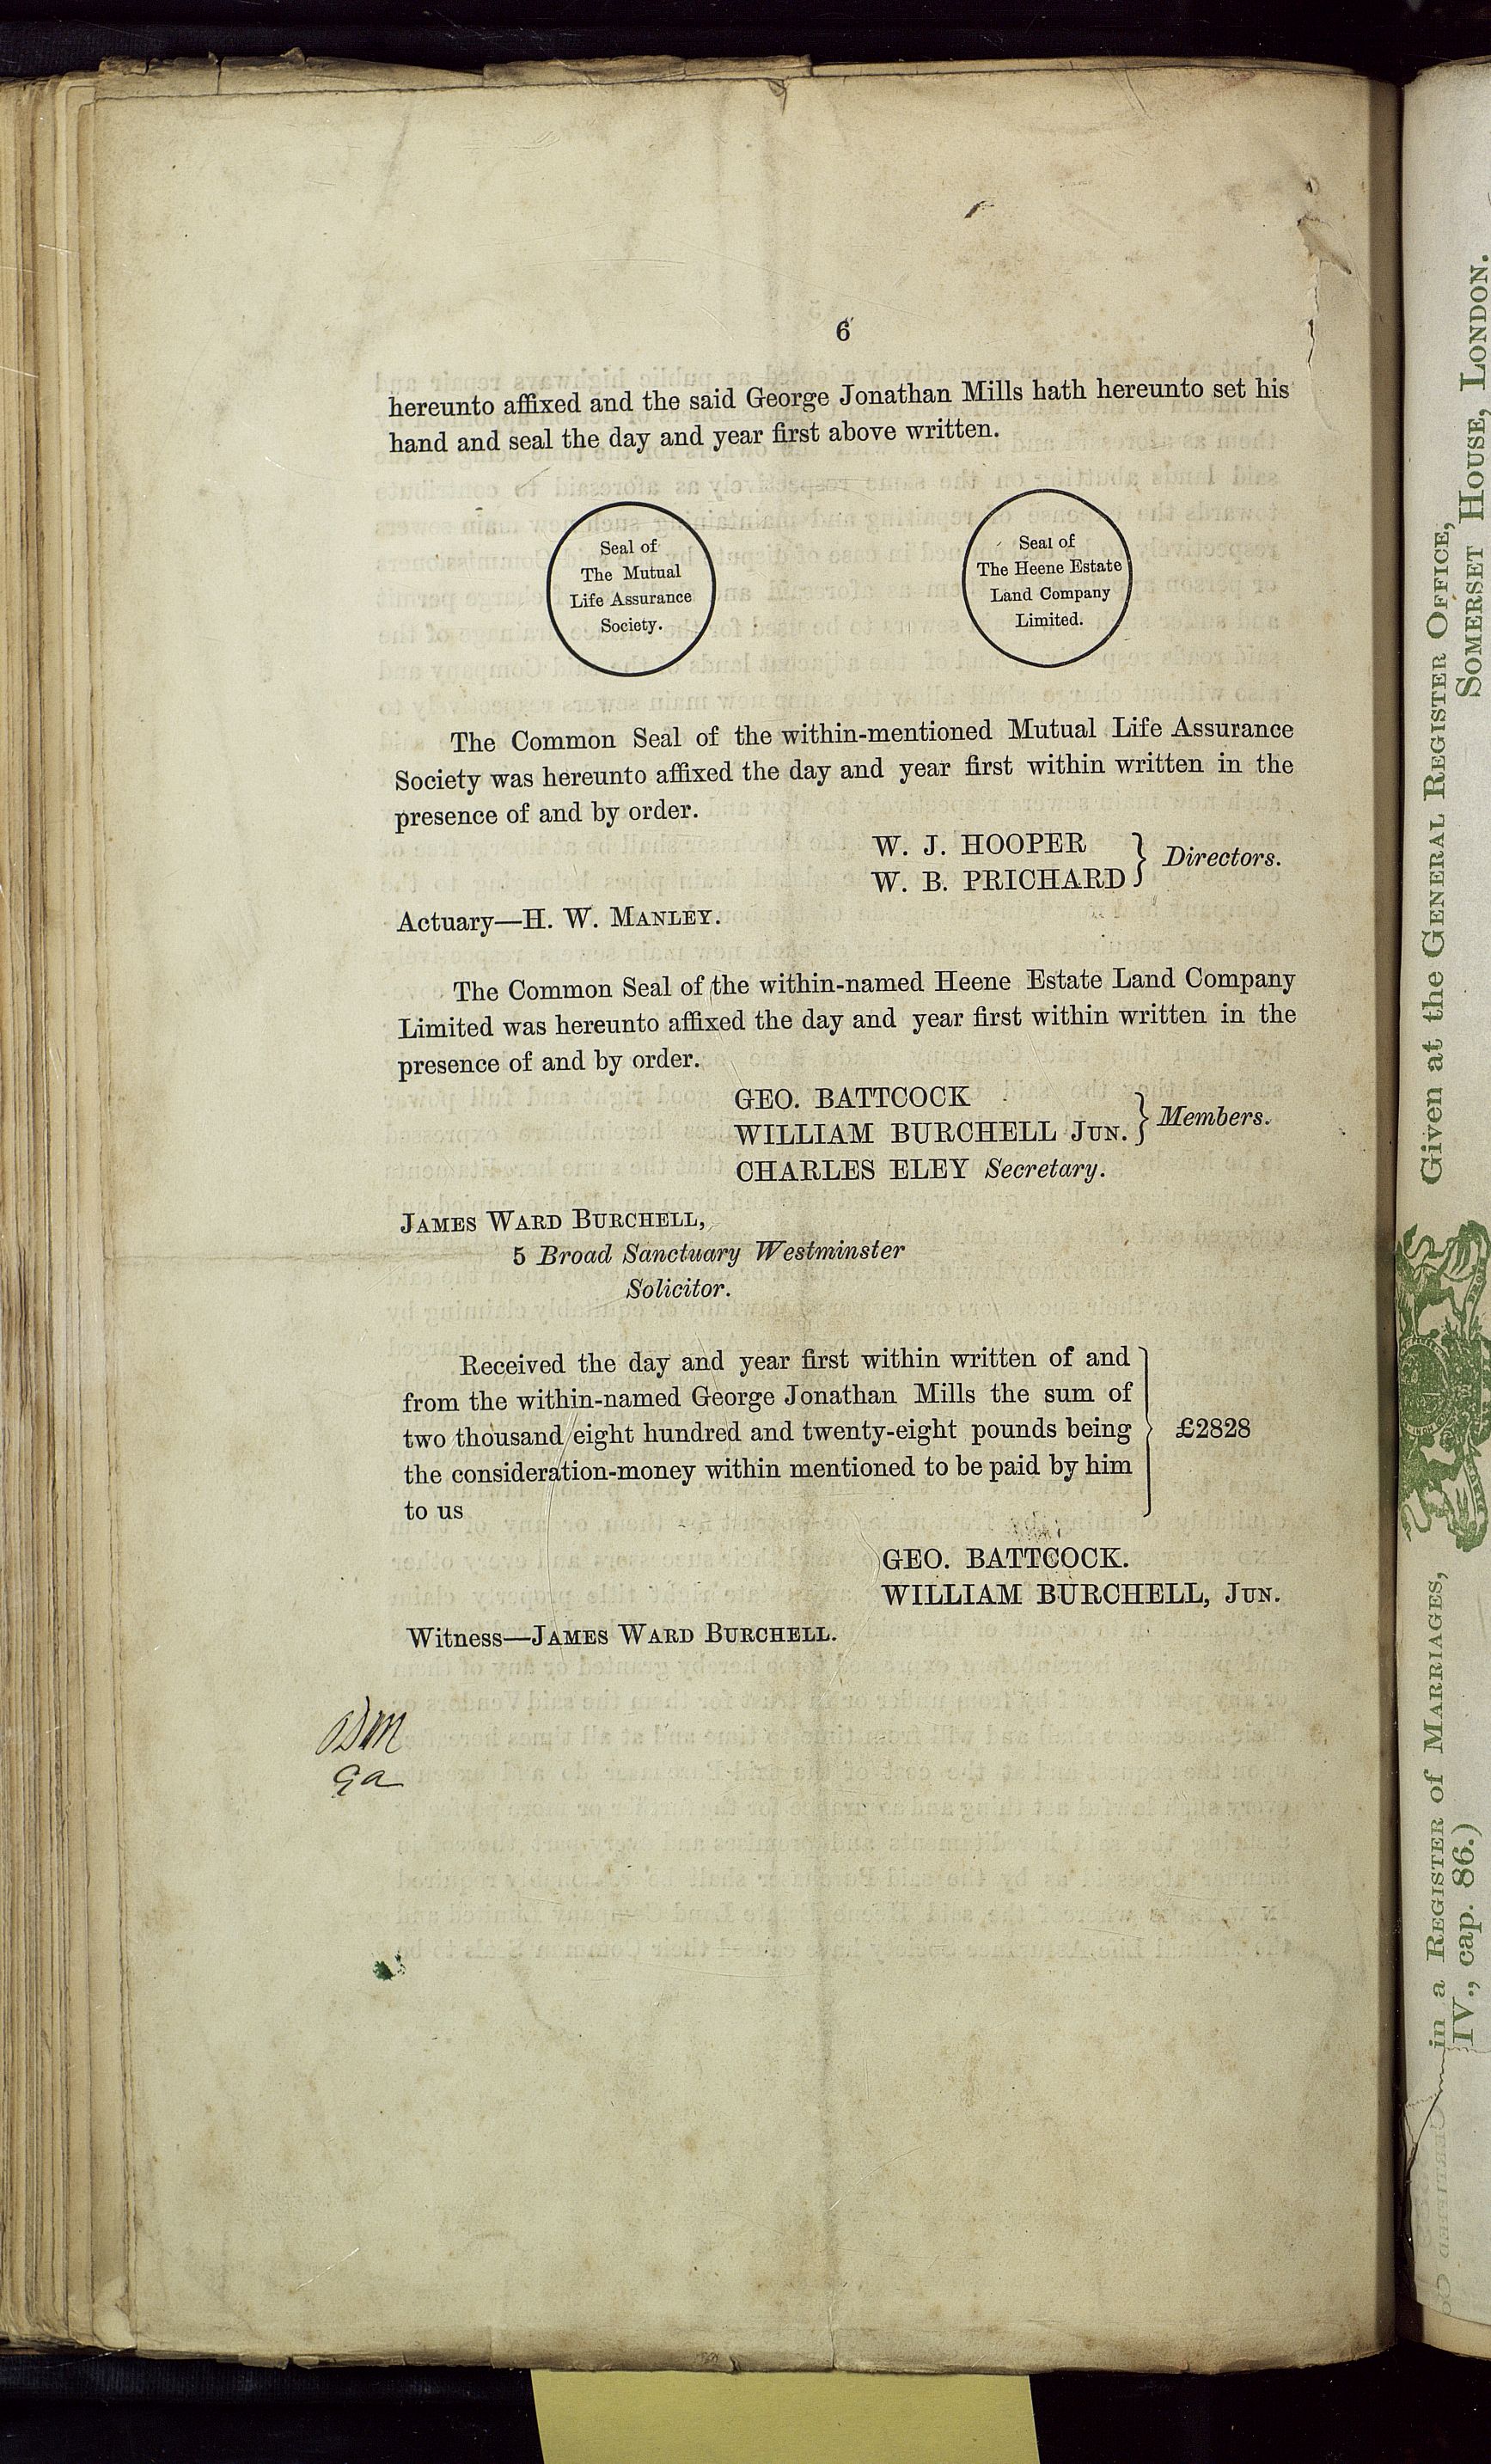 6
hereunto affixed and the said George Jonathan Mills hath hereunto set his
hand and seal the day and year first above written.
Seal of
The Mutual
Life Assurance
Society.
Seal of
The Heene Estate
Land Company
Limited.
The Common Seal of the within-mentioned Mutual Life Assurance
Society was hereunto affixed the day and year first within written in the
presence of and by order.
W. J. HOOPER
W. B. PRICHARD } Directors.
Actuary—H. W. MANLEY.
The Common Seal of the within-named Heene Estate Land Company
Limited was hereunto affixed the day and year first within written in the
presence of and by order.
GEO. BATTCOCK
WILLIAM BURCHELL JUN. } Members.
CHARLES ELEY Secretary.
JAMES WARD BURCHELL,
5 Broad Sanctuary Westminster
Solicitor.
Received the day and year first within written of and
from the within-named George Jonathan Mills the sum of
two thousand eight hundred and twenty-eight pounds being } £2828
the consideration-money within mentioned to be paid by him
to us
GEO. BATTCOCK.
WILLIAM BURCHELL, JUN.
Witness—JAMES WARD BURCHELL.
Given at the GENERAL REGISTER OFFICE,
SOMERSET HOUSE, LONDON.
in a REGISTER of MARRIAGES,
IV., cap. 86.)